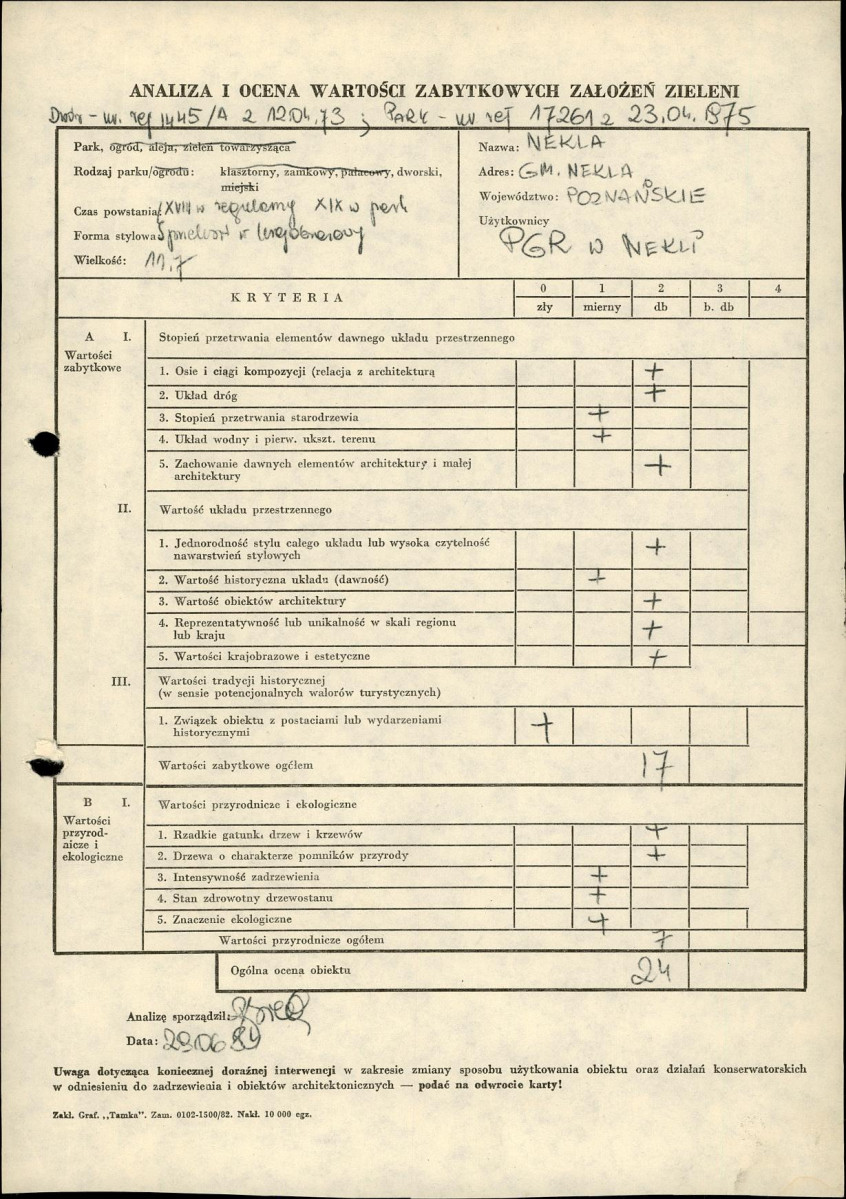 ANALIZA I OCENA WARTOŚCI ZABYTKOWYCH ZAŁOŻEŃ ZIELENI
Dwór - nr. rej 1445/A z 12.04.73 ; PARK - nr rej 1726 z 23.04.1975
Park, ogród, aleja, zieleń towarzysząca
Rodzaj parku/ogrodu: klasztorny, zamkowy, pałacowy, dworski,
miejski
Czas powstania: XVIII w regularny XIX w park
Forma stylowa
Wielkość: 11,7
Nazwa: NEKLA
Adres: GM. NEKLA
Województwo: POZNAŃSKIE
Użytkownicy
PGR W NEKLI
KRYTERIA
0 1 2 3 4
zły mierny db b. db
A I. Stopień przetrwania elementów dawnego układu przestrzennego
Wartości
zabytkowe
1. Osie i ciągi kompozycji (relacja z architekturą +
2. Układ dróg +
3. Stopień przetrwania starodrzewia +
4. Układ wodny i pierw. ukszt. terenu +
5. Zachowanie dawnych elementów architektury i małej
architektury +
II. Wartość układu przestrzennego
1. Jednorodność stylu całego układu lub wysoka czytelność
nawarstwień stylowych +
2. Wartość historyczna układu (dawność) +
3. Wartość obiektów architektury +
4. Reprezentatywność lub unikalność w skali regionu
lub kraju +
5. Wartości krajobrazowe i estetyczne +
III. Wartości tradycji historycznej
(w sensie potencjonalnych walorów turystycznych)
1. Związek obiektu z postaciami lub wydarzeniami
historycznymi +
Wartości zabytkowe ogółem 17
B I. Wartości przyrodnicze i ekologiczne
Wartości
przyrod-
nicze i
ekologiczne
1. Rzadkie gatunki drzew i krzewów +
2. Drzewa o charakterze pomników przyrody +
3. Intensywność zadrzewienia +
4. Stan zdrowotny drzewostanu +
5. Znaczenie ekologiczne +
Wartości przyrodnicze ogółem 7
Ogólna ocena obiektu 24
Analizę sporządził:
Data: 29.06.89
Uwaga dotycząca koniecznej doraźnej interwencji w zakresie zmiany sposobu użytkowania obiektu oraz działań konserwatorskich
w odniesieniu do zadrzewienia i obiektów architektonicznych — podać na odwrocie karty!
Zakł. Graf. „Tamka". Zam. 0102-1500/82. Nakł. 10 000 egz.